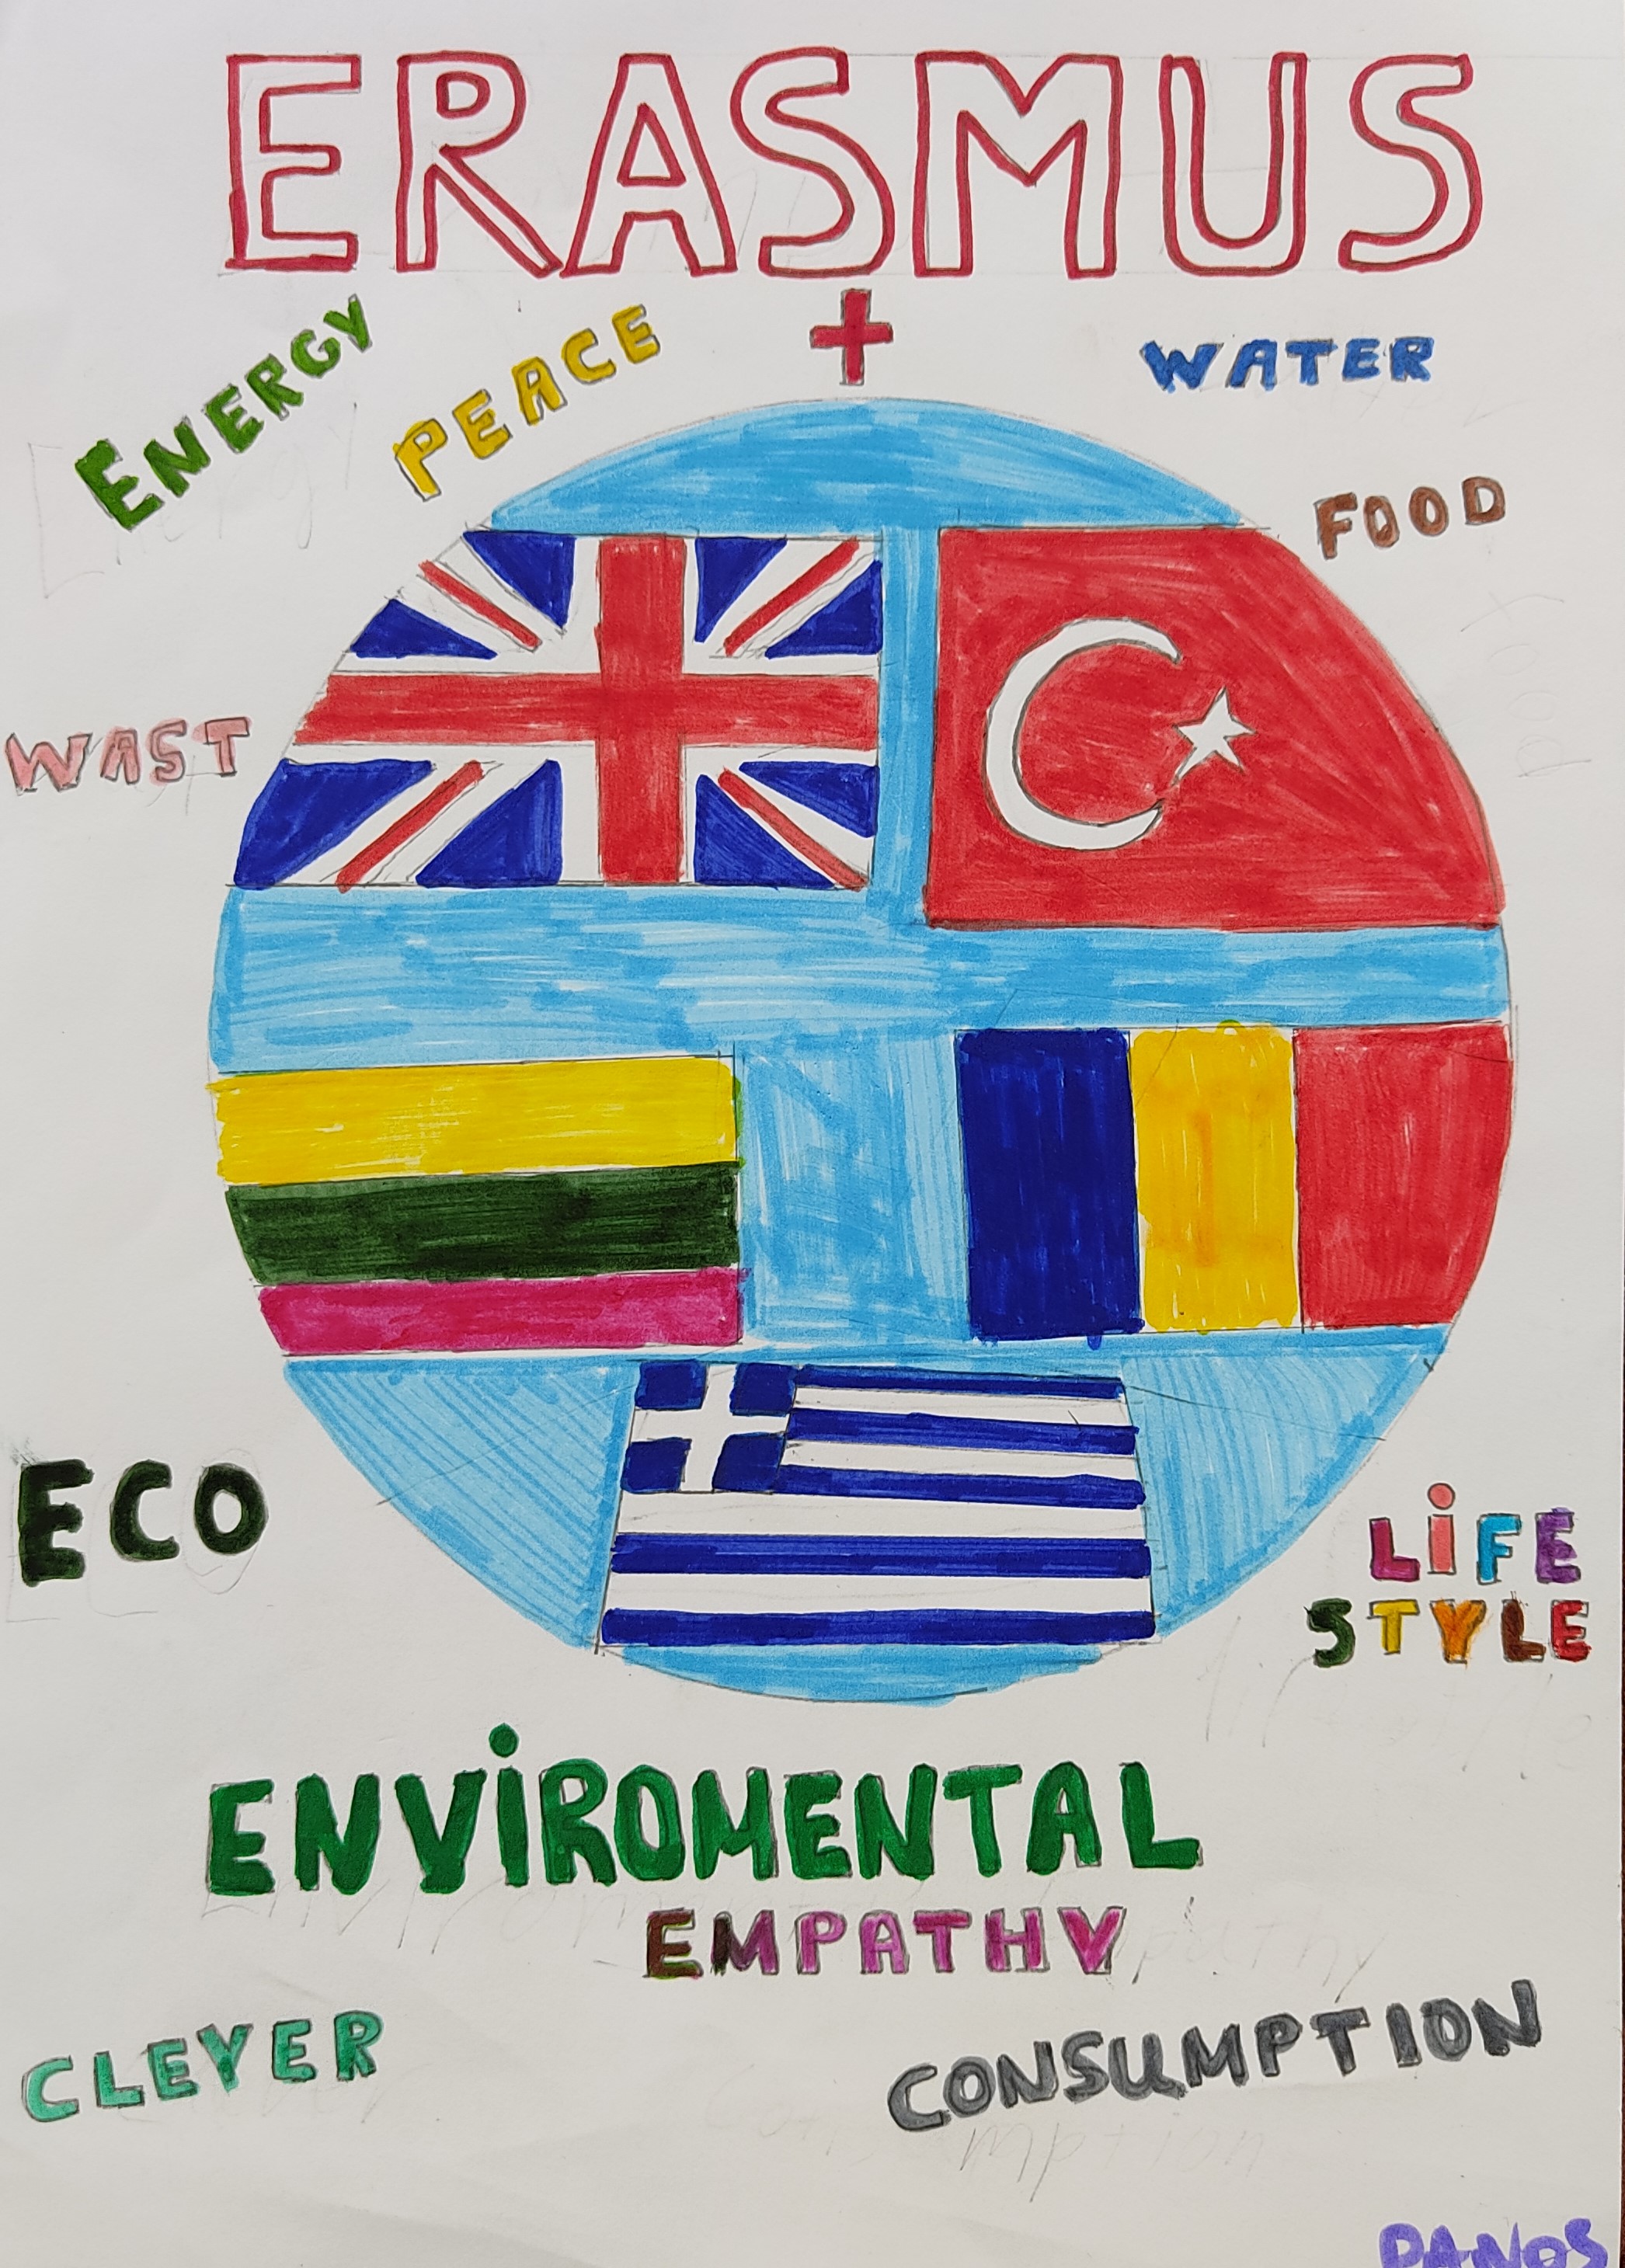 ERASMUS
+
ENERGY
PEACE
WATER
FOOD
WAST
ECO
LiFE
STYLE
ENViROMENTAL
EMPATHY
CLEVER
CONSUMPTION
PANOS